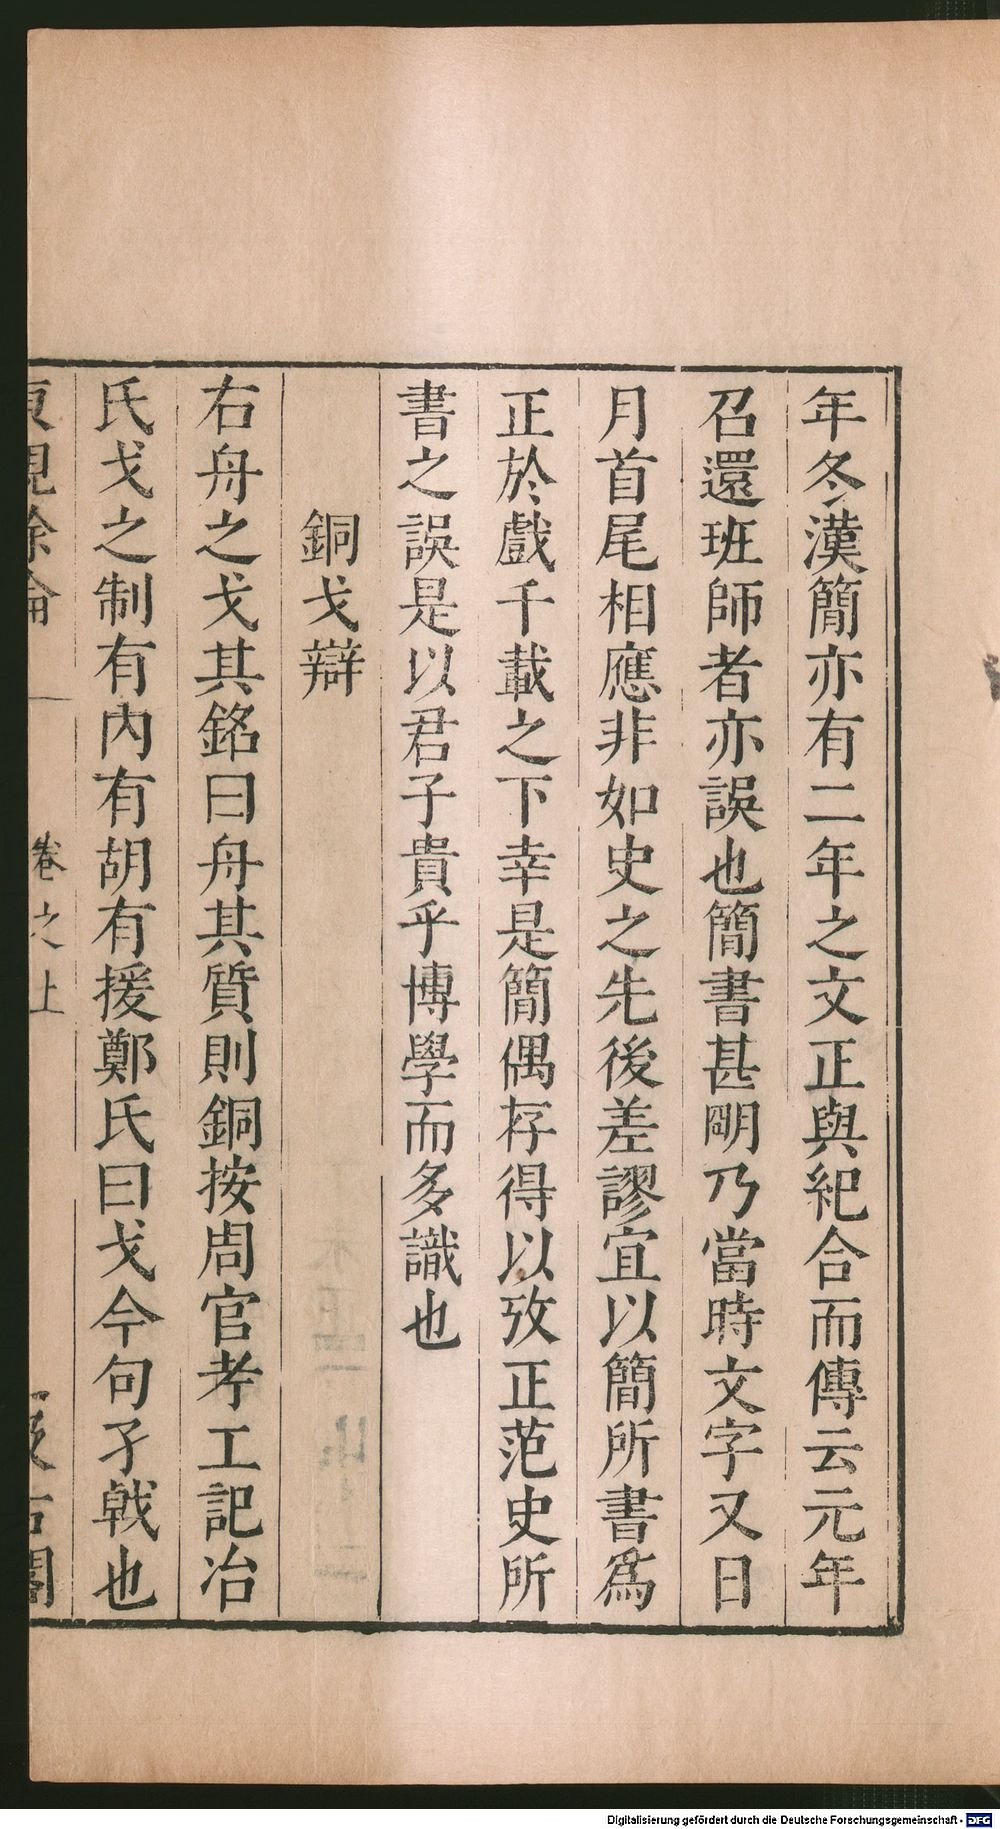 年冬漢簡亦有二年之文正與紀合而傳云元年
召還班師者亦誤也簡書甚明乃當時文字又日
月首尾相應非如史之先後差謬宜以簡所書爲
正於戲千載之下幸是簡偶存得以攷正范史所
書之誤是以君子貴乎博學而多識也
銅戈辯
右舟之戈其銘曰舟其質則銅按周官考工記冶
氏戈之制有內有胡有援鄭氏曰戈今句孑戟也
東觀餘論 卷之上 汲古閣
Digitalisierung gefördert durch die Deutsche Forschungsgemeinschaft - DFG